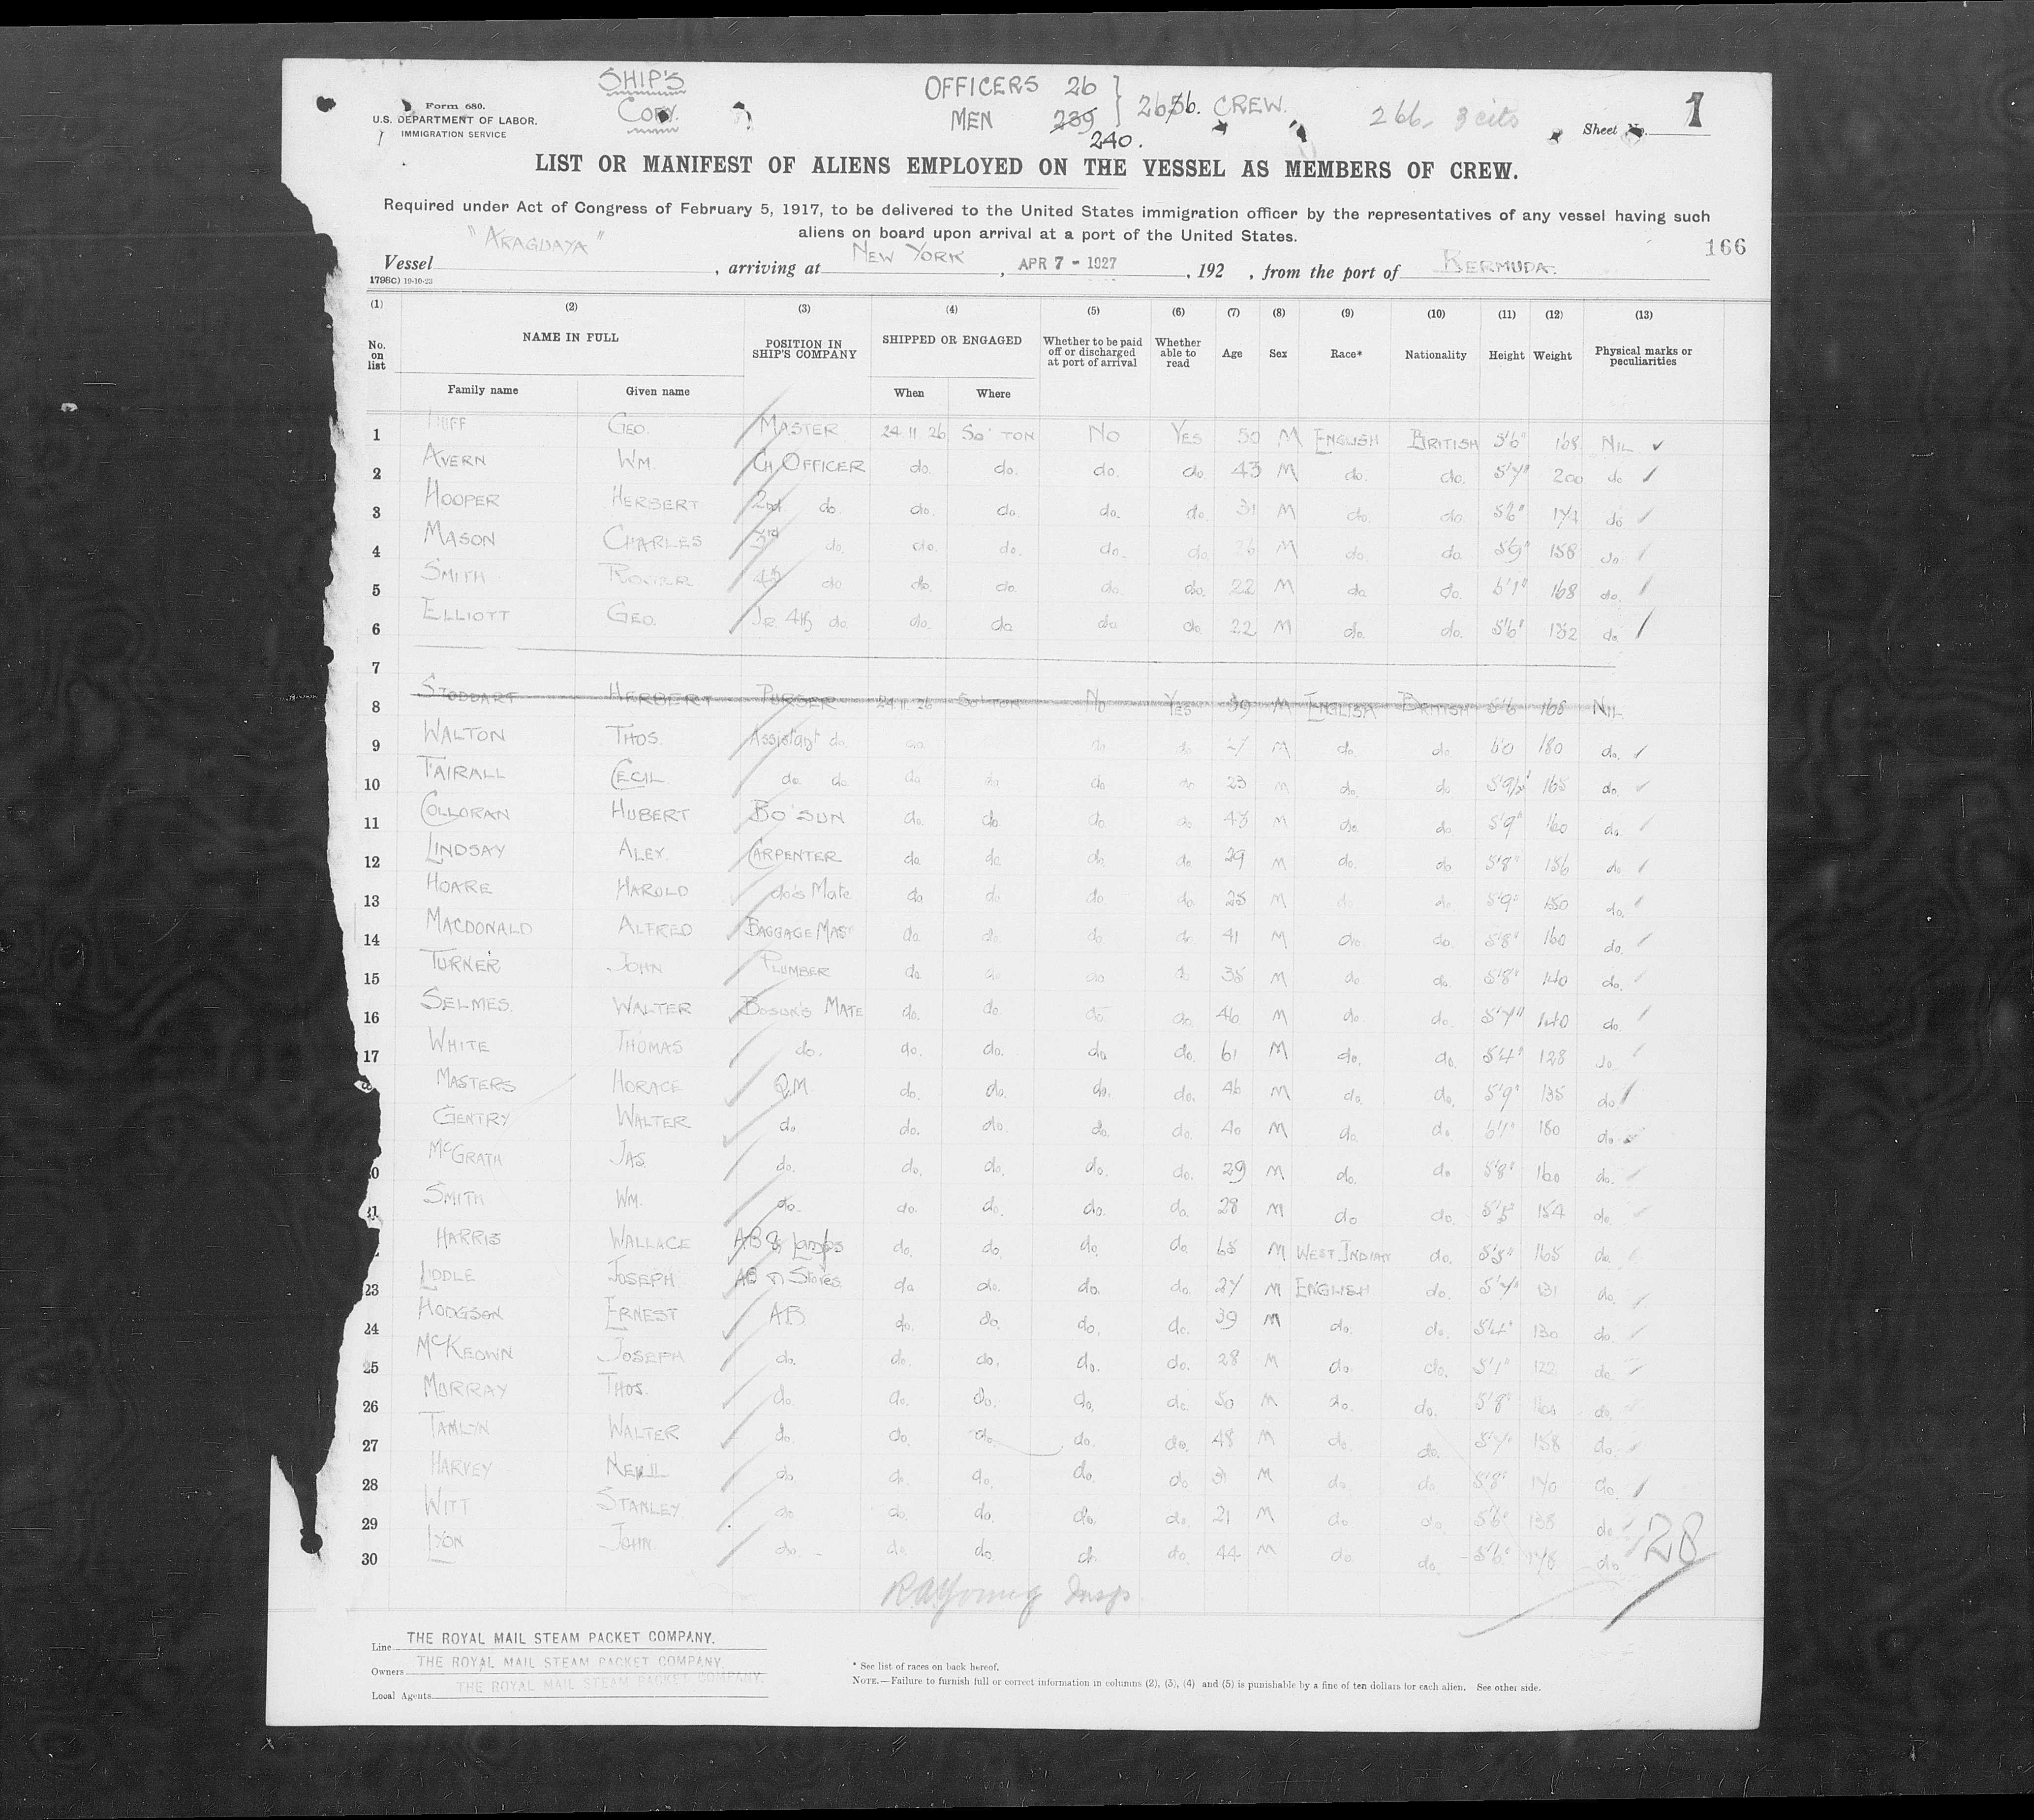 SHIP'S
COPY.
Form 680.
U.S. DEPARTMENT OF LABOR.
IMMIGRATION SERVICE
OFFICERS 26
MEN 239 CREW.
240.
266 - 3 cits
Sheet No. 1
LIST OR MANIFEST OF ALIENS EMPLOYED ON THE VESSEL AS MEMBERS OF CREW.
Required under Act of Congress of February 5, 1917, to be delivered to the United States immigration officer by the representatives of any vessel having such
aliens on board upon arrival at a port of the United States.
166
Vessel "ARAGUAYA", arriving at NEW YORK, APR 7 - 1927, 192 , from the port of BERMUDA.
1798C) 19-10-23
(1) (2) (3) (4) (5) (6) (7) (8) (9) (10) (11) (12) (13)
No. on list NAME IN FULL POSITION IN SHIP'S COMPANY SHIPPED OR ENGAGED Whether to be paid off or discharged at port of arrival Whether able to read Age Sex Race* Nationality Height Weight Physical marks or peculiarities
Family name Given name When Where
1 HUFF GEO. MASTER 24 11 26 SO'TON NO YES 50 M ENGLISH BRITISH 5'6" 168 NIL
2 AVERN WM. CH OFFICER do. do. do. do. 43 M do. do. 5'7" 200 do
3 HOOPER HERBERT 2nd do. do. do. do. do. 31 M do. do 5'8" 174 do
4 MASON CHARLES 3rd do. do. do. do. do. 26 M do. do. 5'9" 158 do.
5 SMITH ROGER 4th do do. do. do. do. 22 M do. do. 6'1" 168 do.
6 ELLIOTT GEO. JR. 4th do. do. do do. do 22 M do. do. 5'6" 132 do
7
8 STODDART HERBERT PURSER 24 11 26 SO'TON NO YES 39 M ENGLISH BRITISH 5'6 168 NIL
9 WALTON THOS. Assistant do. do. do do 27 M do. do 6'0 180 do.
10 FAIRALL CECIL. do do do do do do 23 M do. do 5'9½" 165 do.
11 COLLORAN HUBERT BO'SUN do. do. do do 43 M do. do. 5'9" 160 do.
12 LINDSAY ALEX. CARPENTER do do. do. do. 29 M do. do 5'8" 156 do
13 HOARE HAROLD do's Mate do do do. do. 25 M do do 5'9" 150 do.
14 MACDONALD ALFRED BAGGAGE MAST do. do. do do. 41 M do. do. 5'8" 160 do.
15 TURNER JOHN PLUMBER do do do do 35 M do do. 5'8" 140 do.
16 SELMES. WALTER BOSUN'S MATE do. do. do. do. 46 M do do. 5'7" 140 do.
17 WHITE THOMAS do. do. do. do do. 61 M do. do. 5'4" 128 do.
MASTERS HORACE Q.M do. do. do. do. 46 M do. do. 5'9" 135 do
GENTRY WALTER do. do. do. do. do. 40 M do. do. 6'1" 180 do.
0 McGRATH JAS. do. do. do. do. do. 29 M do. do 5'8" 160 do.
1 SMITH WM. do. do. do. do. do. 28 M do do. 5'5" 154 do.
HARRIS WALLACE AB & Lamps do. do. do. do. 65 M WEST INDIAN do. 5'5" 165 do.
23 LIDDLE JOSEPH AB & Stores do do. do. do. 27 M ENGLISH do. 5'7" 131 do.
24 HODGSON ERNEST A.B. do. do. do. do. 39 M do. do. 5'4" 130 do.
25 McKEOWN JOSEPH do. do. do. do. do. 28 M do. do. 5'1" 122 do
26 MURRAY THOS. do. do. do. do. do. 50 M do. do. 5'8" do.
27 TAMLYN WALTER do. do. do. do. do. 48 M do. do. 5'7" 158 do.
28 HARVEY NEVIL do. do. do. do. do 31 M do. do. 5'8" 170 do.
29 WITT STANLEY. do do. do. do. do. 21 M do do. 5'6" 138 do
30 LYON JOHN do. do. do. do. do. 44 M do. do. 5'6" do
28
R A Young Insp
Line THE ROYAL MAIL STEAM PACKET COMPANY.
Owners THE ROYAL MAIL STEAM PACKET COMPANY.
Local Agents THE ROYAL MAIL STEAM PACKET COMPANY.
* See list of races on back hereof.
NOTE.—Failure to furnish full or correct information in columns (2), (3), (4) and (5) is punishable by a fine of ten dollars for each alien. See other side.